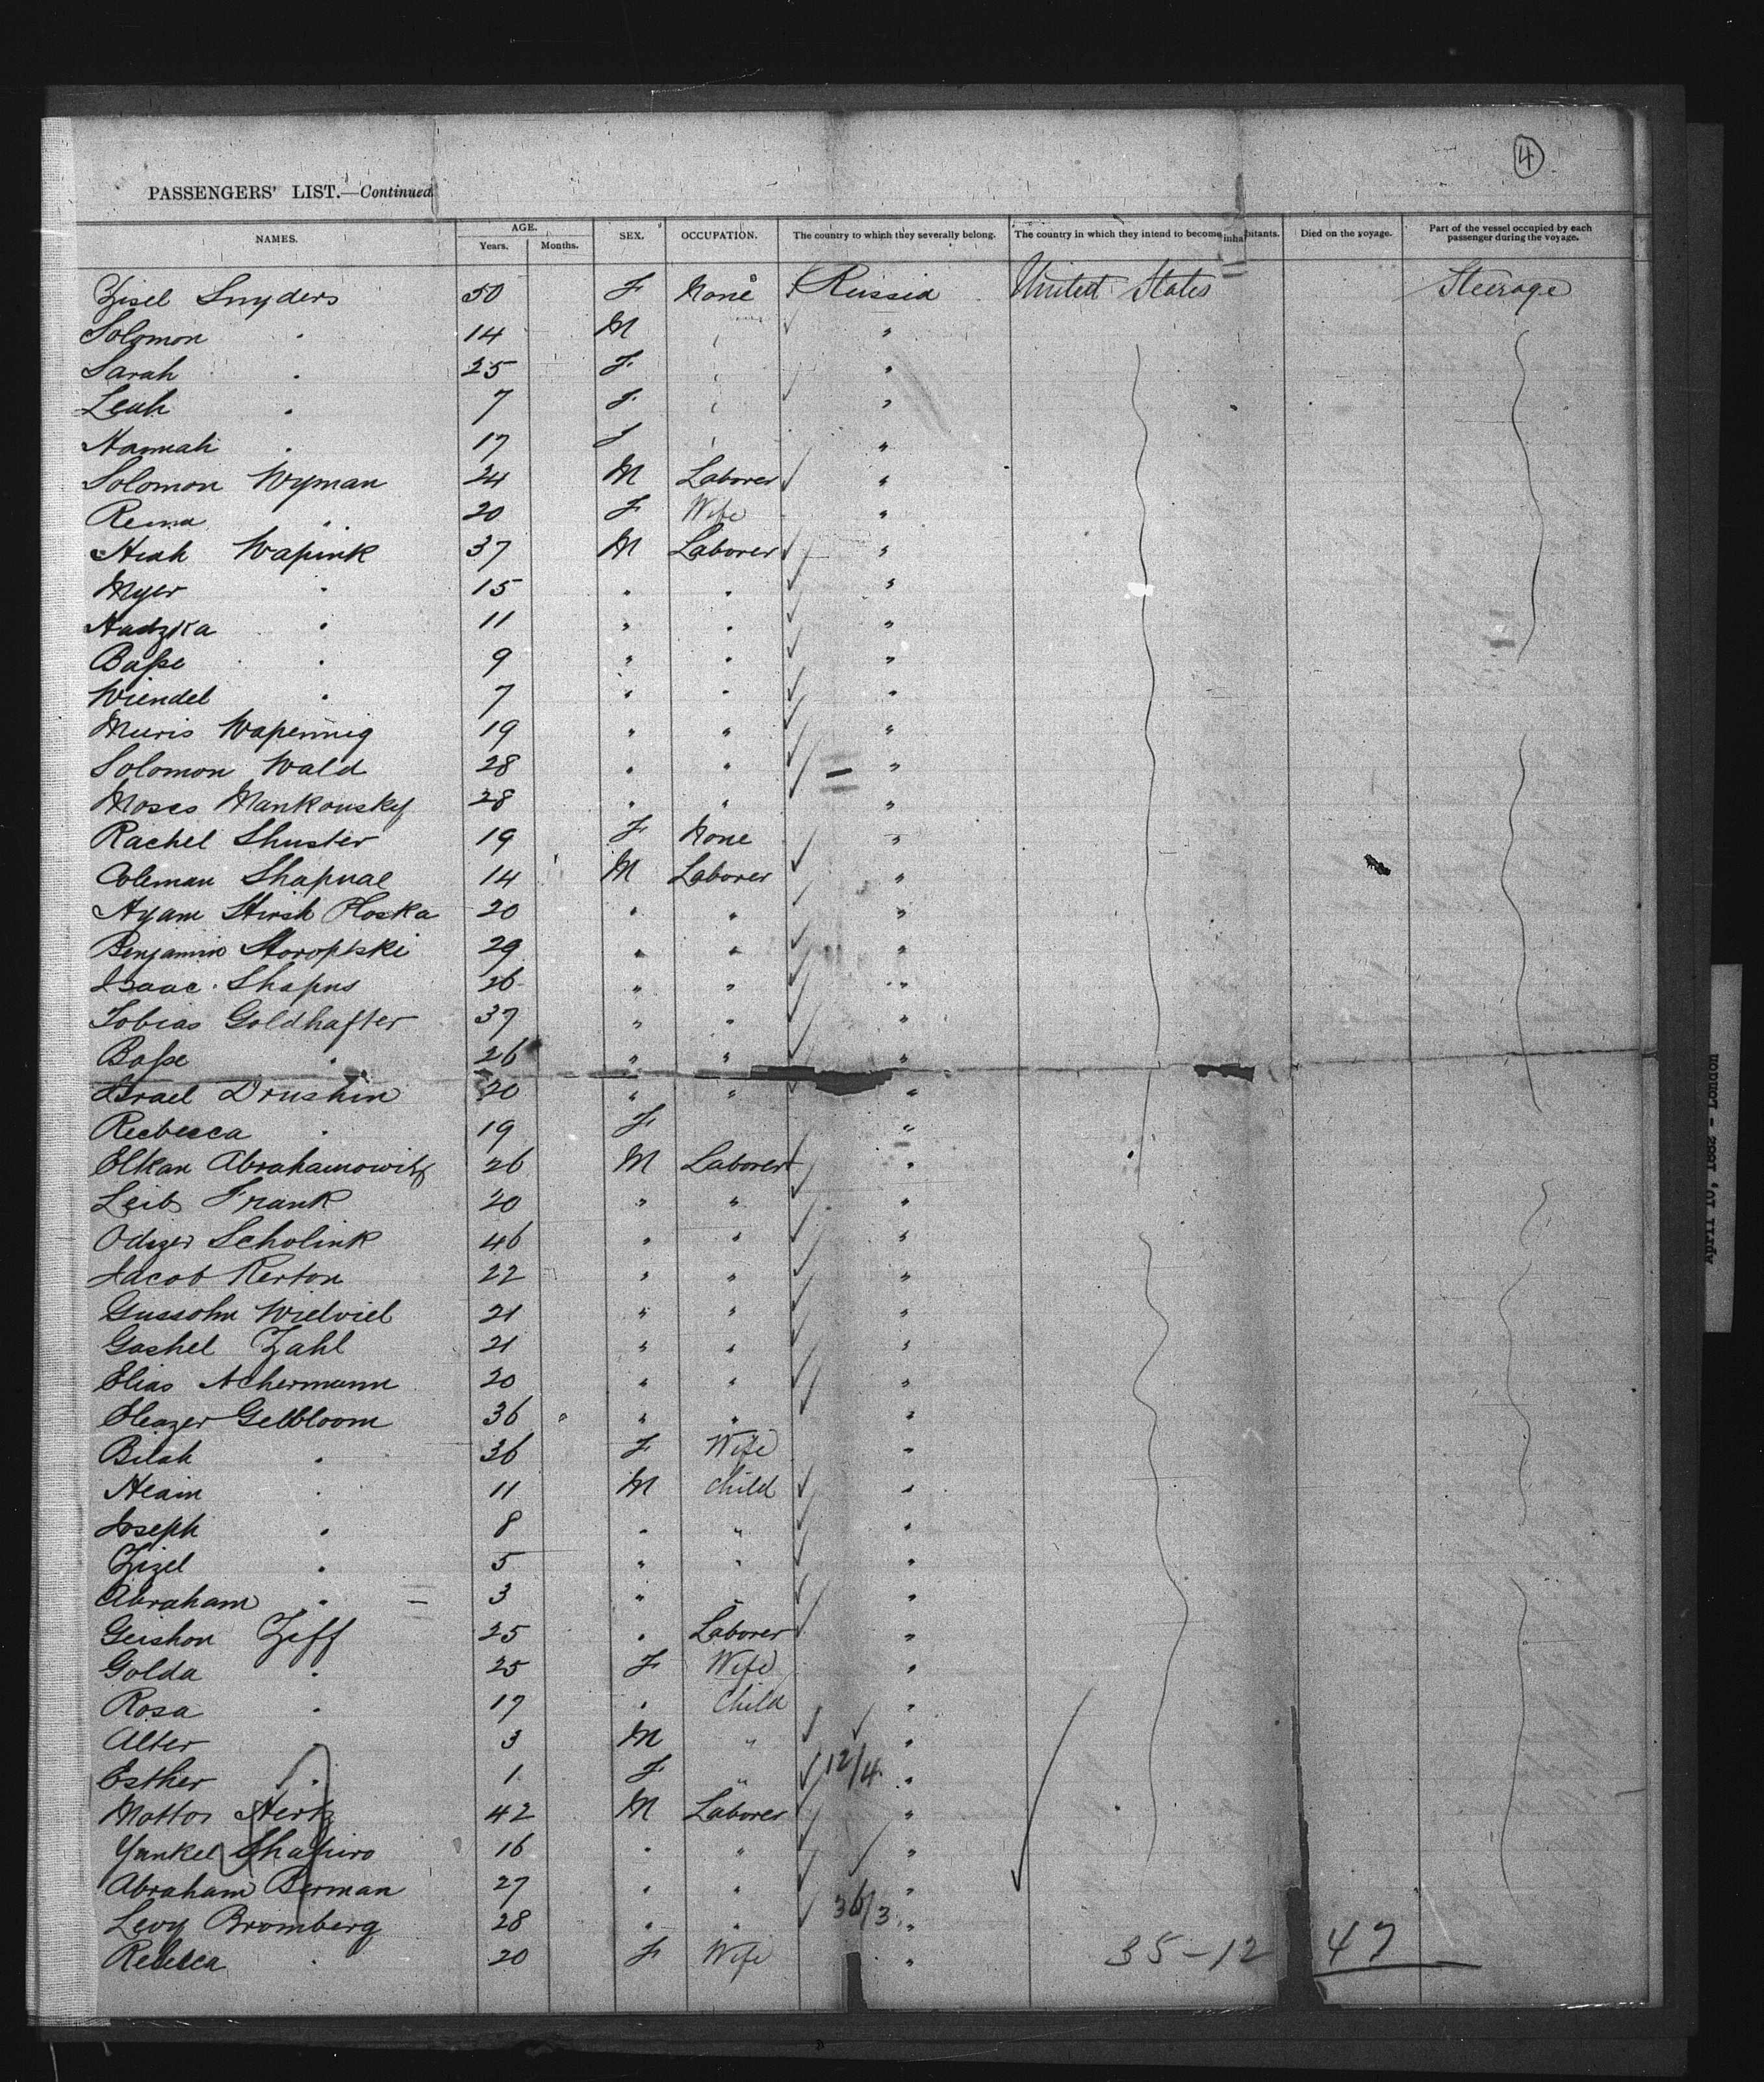 4
PASSENGERS' LIST.—Continued
NAMES. AGE. Years. Months. SEX. OCCUPATION. The country to which they severally belong. The country in which they intend to become inhabitants. Died on the voyage. Part of the vessel occupied by each passenger during the voyage.
Zisel Snyders 50 F None Russia United States Steerage
Solomon " 14 M " "
Sarah " 25 F " "
Leah " 7 F " "
Hannah " 17 F " "
Solomon Wyman 24 M Laborer "
Reina " 20 F Wife "
Hiah Wapink 37 M Laborer "
Myer " 15 " " "
Hudzka " 11 " " "
Basse " 9 " " "
Wiendel " 7 " " "
Muris Wapennig 19 " " "
Solomon Wald 28 " " "
Moses Mankousky 28 " " "
Rachel Shuster 19 F None "
Coleman Shapual 14 M Laborer "
Ayam Hirsh Ploska 20 " " "
Benjamin 29 " " "
Isaac Shapus 26 " " "
Tobias Goldhafter 37 " " "
Basse " 26 " " "
Israel Drushin 20 " " "
Recbecca " 19 F "
Elkan Abrahamowitz 26 M Laborer "
Leib Frank 20 " " "
Odizer Scholink 46 " " "
Jacob Kerton 22 " " "
Gussohn Wielviel 21 " " "
Gashel Zahl 21 " " "
Elias Achermann 20 " " "
Eleazer Gelbloom 36 " " "
Bilah " 36 F Wife "
Heain " 11 M Child "
Joseph " 8 " " "
Zizel " 5 " " "
Abraham " 3 " " "
Geishon Zeff 25 " Laborer "
Golda " 25 F Wife "
Rosa " 17 " Child "
Alter " 3 M " "
Esther " 1 F " 12/4 "
Mottos Hertz 42 M Laborer "
Yankel Shapiro 16 " " "
Abraham Berman 27 " " "
Levy Bromberg 28 " " 36/3 "
Rebecca " 20 F Wife "
35-12 47
April 10, 1882 - London